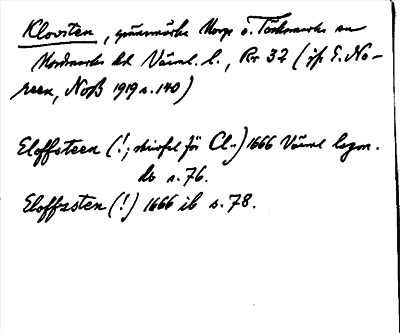 Klovsten, gränsmärke Norge o. Töcksmarks sn
Nordmarks hd Värml. l., Rr 32 (jfr E. No-
reen, NoB 1919 s. 140)
Eloffsteen (!; skrivfel för Cl-) 1666 Värml
ib s. 76.
Eloffzsten (!) 1666 ib s. 78.